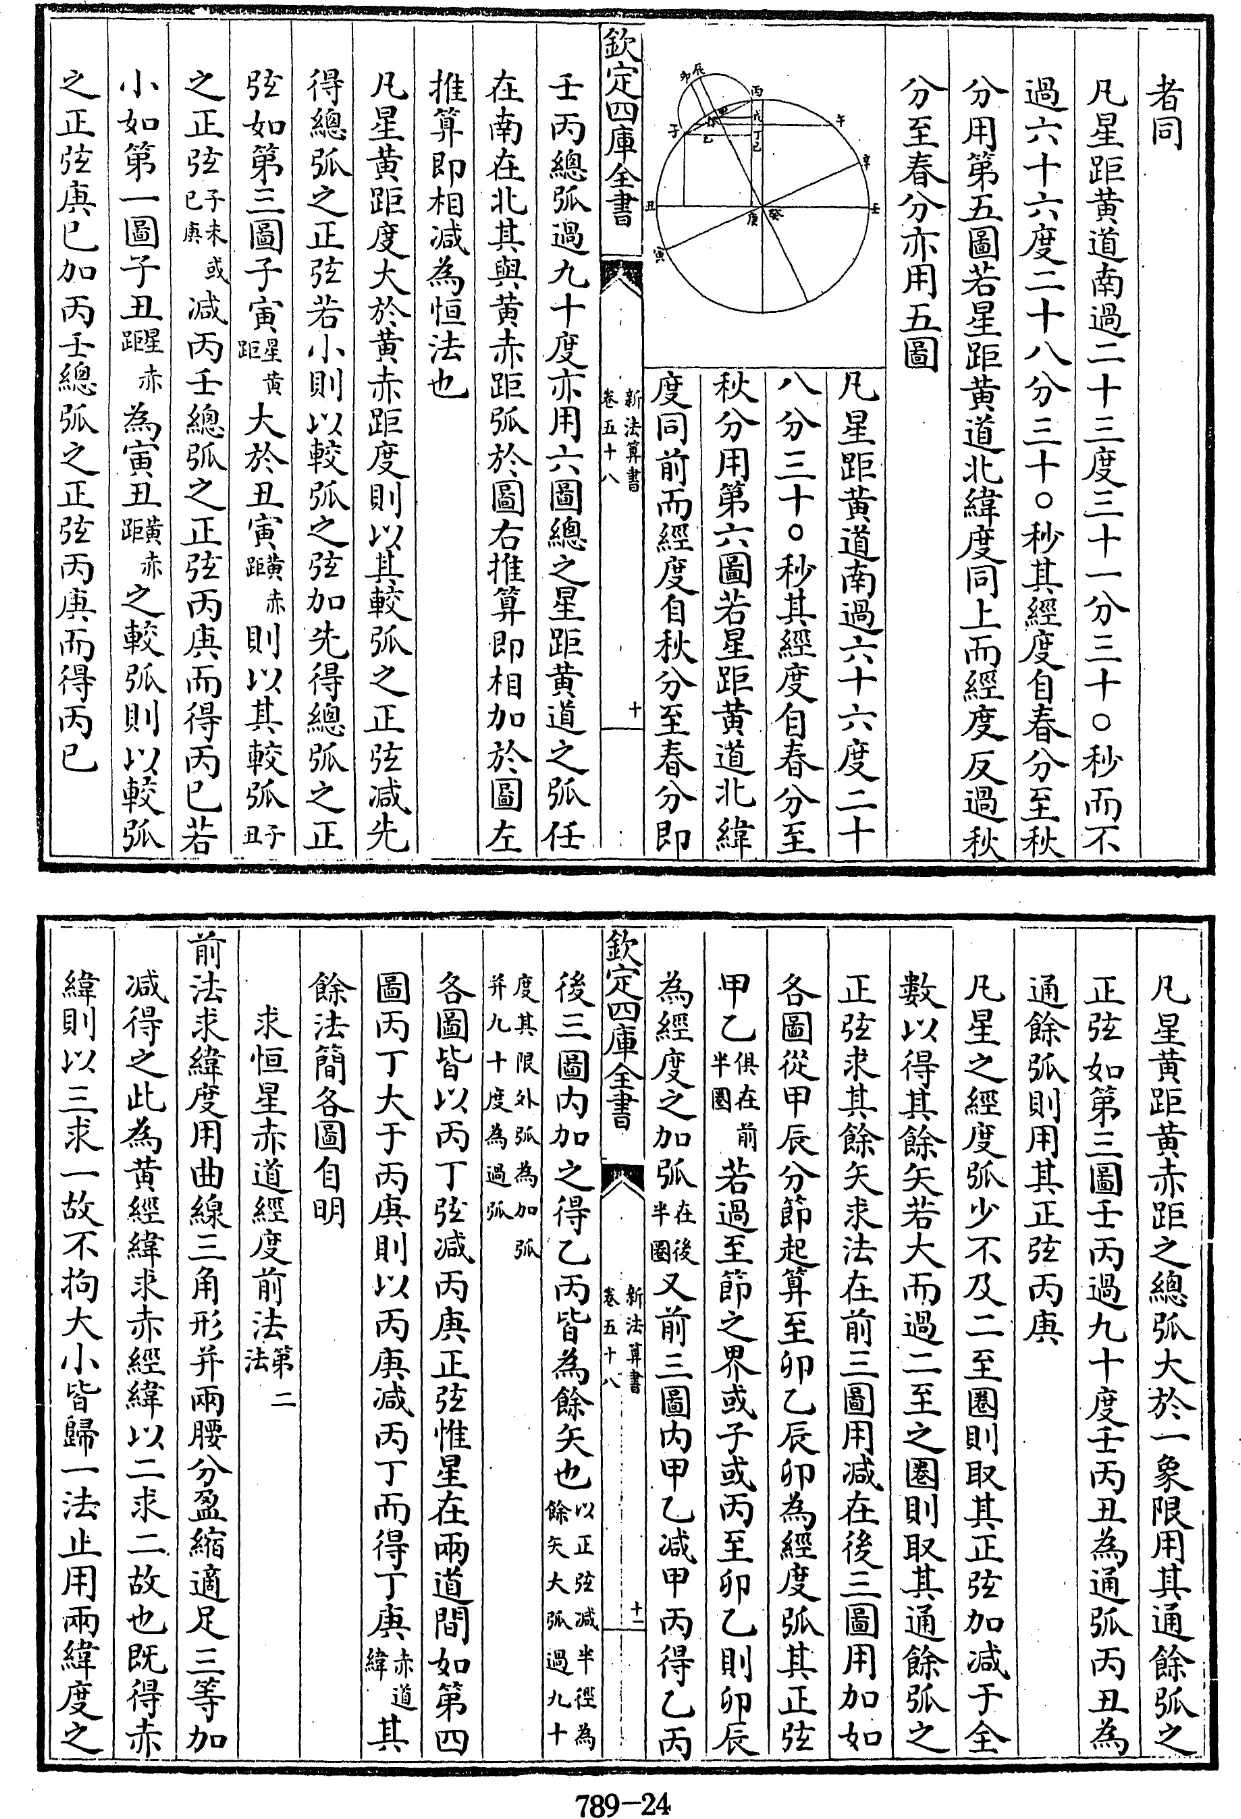 者同
凡星距黄道南過二十三度三十一分三十〇秒而不
過六十六度二十八分三十〇秒其經度自春分至秋
分用第五圖若星距黄道北緯度同上而經度反過秋
分至春分亦用五圖
卯辰
丙
子
甲
戊
丁
己
乙
午
辛
丑
庚
癸
壬
寅
凡星距黄道南過六十六度二十
八分三十〇秒其經度自春分至
秋分用第六圖若星距黄道北緯
度同前而經度自秋分至春分即
欽定四庫全書
新法算書
卷五十八
十
壬丙總弧過九十度亦用六圖總之星距黄道之弧任
在南在北其與黄赤距弧於圖右推算即相加於圖左
推算即相減為恒法也
凡星黄距度大於黄赤距度則以其較弧之正弦減先
得總弧之正弦若小則以較弧之弦加先得總弧之正
弦如第三圖子寅星黄距大於丑寅黄赤距則以其較弧子丑
之正弦子未或己庚減丙壬總弧之正弦丙庚而得丙已若
小如第一圖子丑星赤距為寅丑黄赤距之較弧則以較弧
之正弦庚已加丙壬總弧之正弦丙庚而得丙已
凡星黄距黄赤距之總弧大於一象限用其通餘弧之
正弦如第三圖壬丙過九十度壬丙丑為通弧丙丑為
通餘弧則用其正弦丙庚
凡星之經度弧少不及二至圈則取其正弦加減于全
數以得其餘矢若大而過二至之圈則取其通餘弧之
正弦求其餘矢求法在前三圖用減在後三圖用加如
各圖從甲辰分節起算至卯乙辰卯為經度弧其正弦
甲乙俱在前半圈若過至節之界或子或丙至卯乙則卯辰
為經度之加弧在後半圈又前三圖内甲乙減甲丙得乙丙
欽定四庫全書
新法算書
卷五十八
十一
後三圖内加之得乙丙皆為餘矢也以正弦減半徑為餘矢大弧過九十
度其限外弧為加弧并九十度為過弧
各圖皆以丙丁弦減丙庚正弦惟星在兩道間如第四
圖丙丁大于丙庚則以丙庚減丙丁而得丁庚赤道緯其
餘法簡各圖自明
求恒星赤道經度前法第二法
前法求緯度用曲線三角形并兩腰分盈縮適足三等加
減得之此為黄經緯求赤經緯以二求二故也既得赤
緯則以三求一故不拘大小皆歸一法止用兩緯度之
789-24